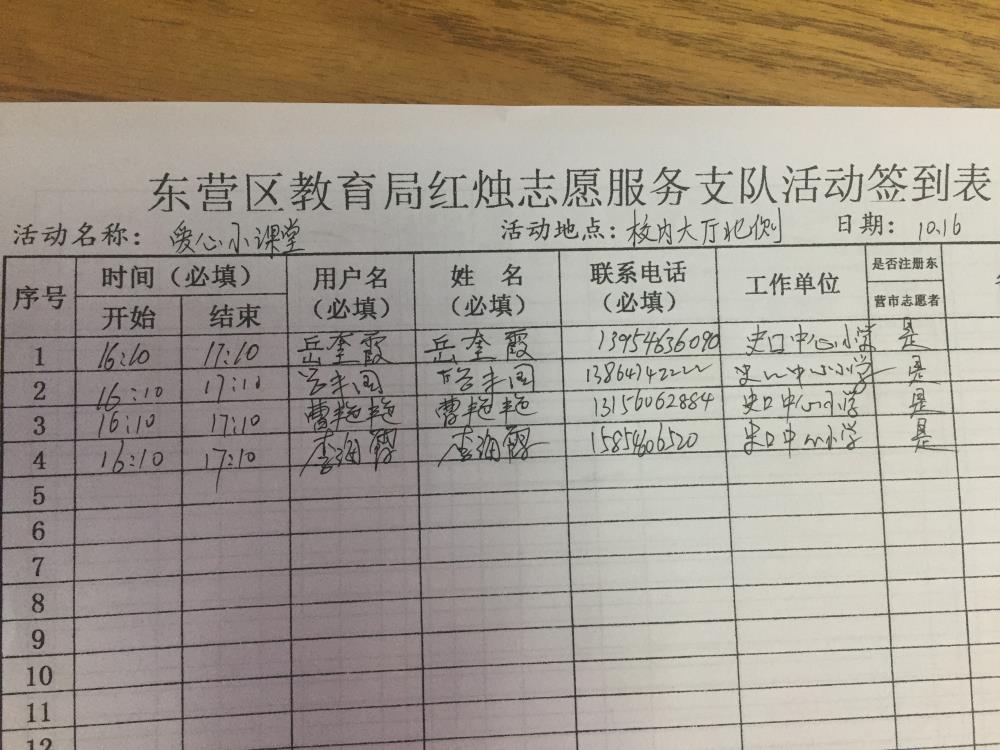 东营区教育局红烛志愿服务支队活动签到表
活动名称: 爱心小课堂 活动地点: 校内大厅北侧 日期: 10.16
序号 时间（必填） 用户名（必填） 姓 名（必填） 联系电话（必填） 工作单位 是否注册东营市志愿者
开始 结束
1 16:10 17:10 岳奎霞 岳奎霞 13954636090 史口中心小学 是
2 16:10 17:10 史口中心小学 是
3 16:10 17:10 曹艳艳 曹艳艳 13156062884 史口中心小学 是
4 16:10 17:10 李海霞 李海霞 15854606520 史口中心小学 是
5
6
7
8
9
10
11
12